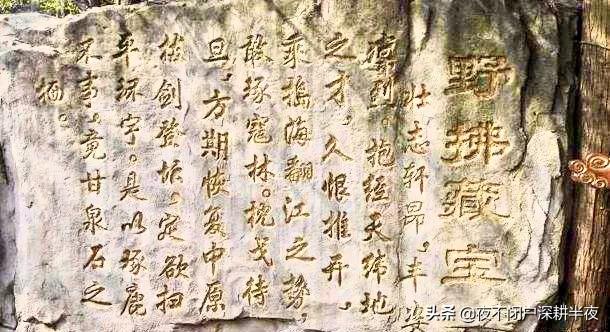 野拂藏宝
壮志轩昂,丰姿
凛冽。抱经天纬地
之才,久恨推开,
乘捣海翻江之势,
敢琢寇林。枕戈待
旦,方期恢复中原
拔剑登坛,定欲扫
平环宇。是以琢鹿
不事,竟甘泉石之
栖。
头条 @夜不闭户深耕半夜